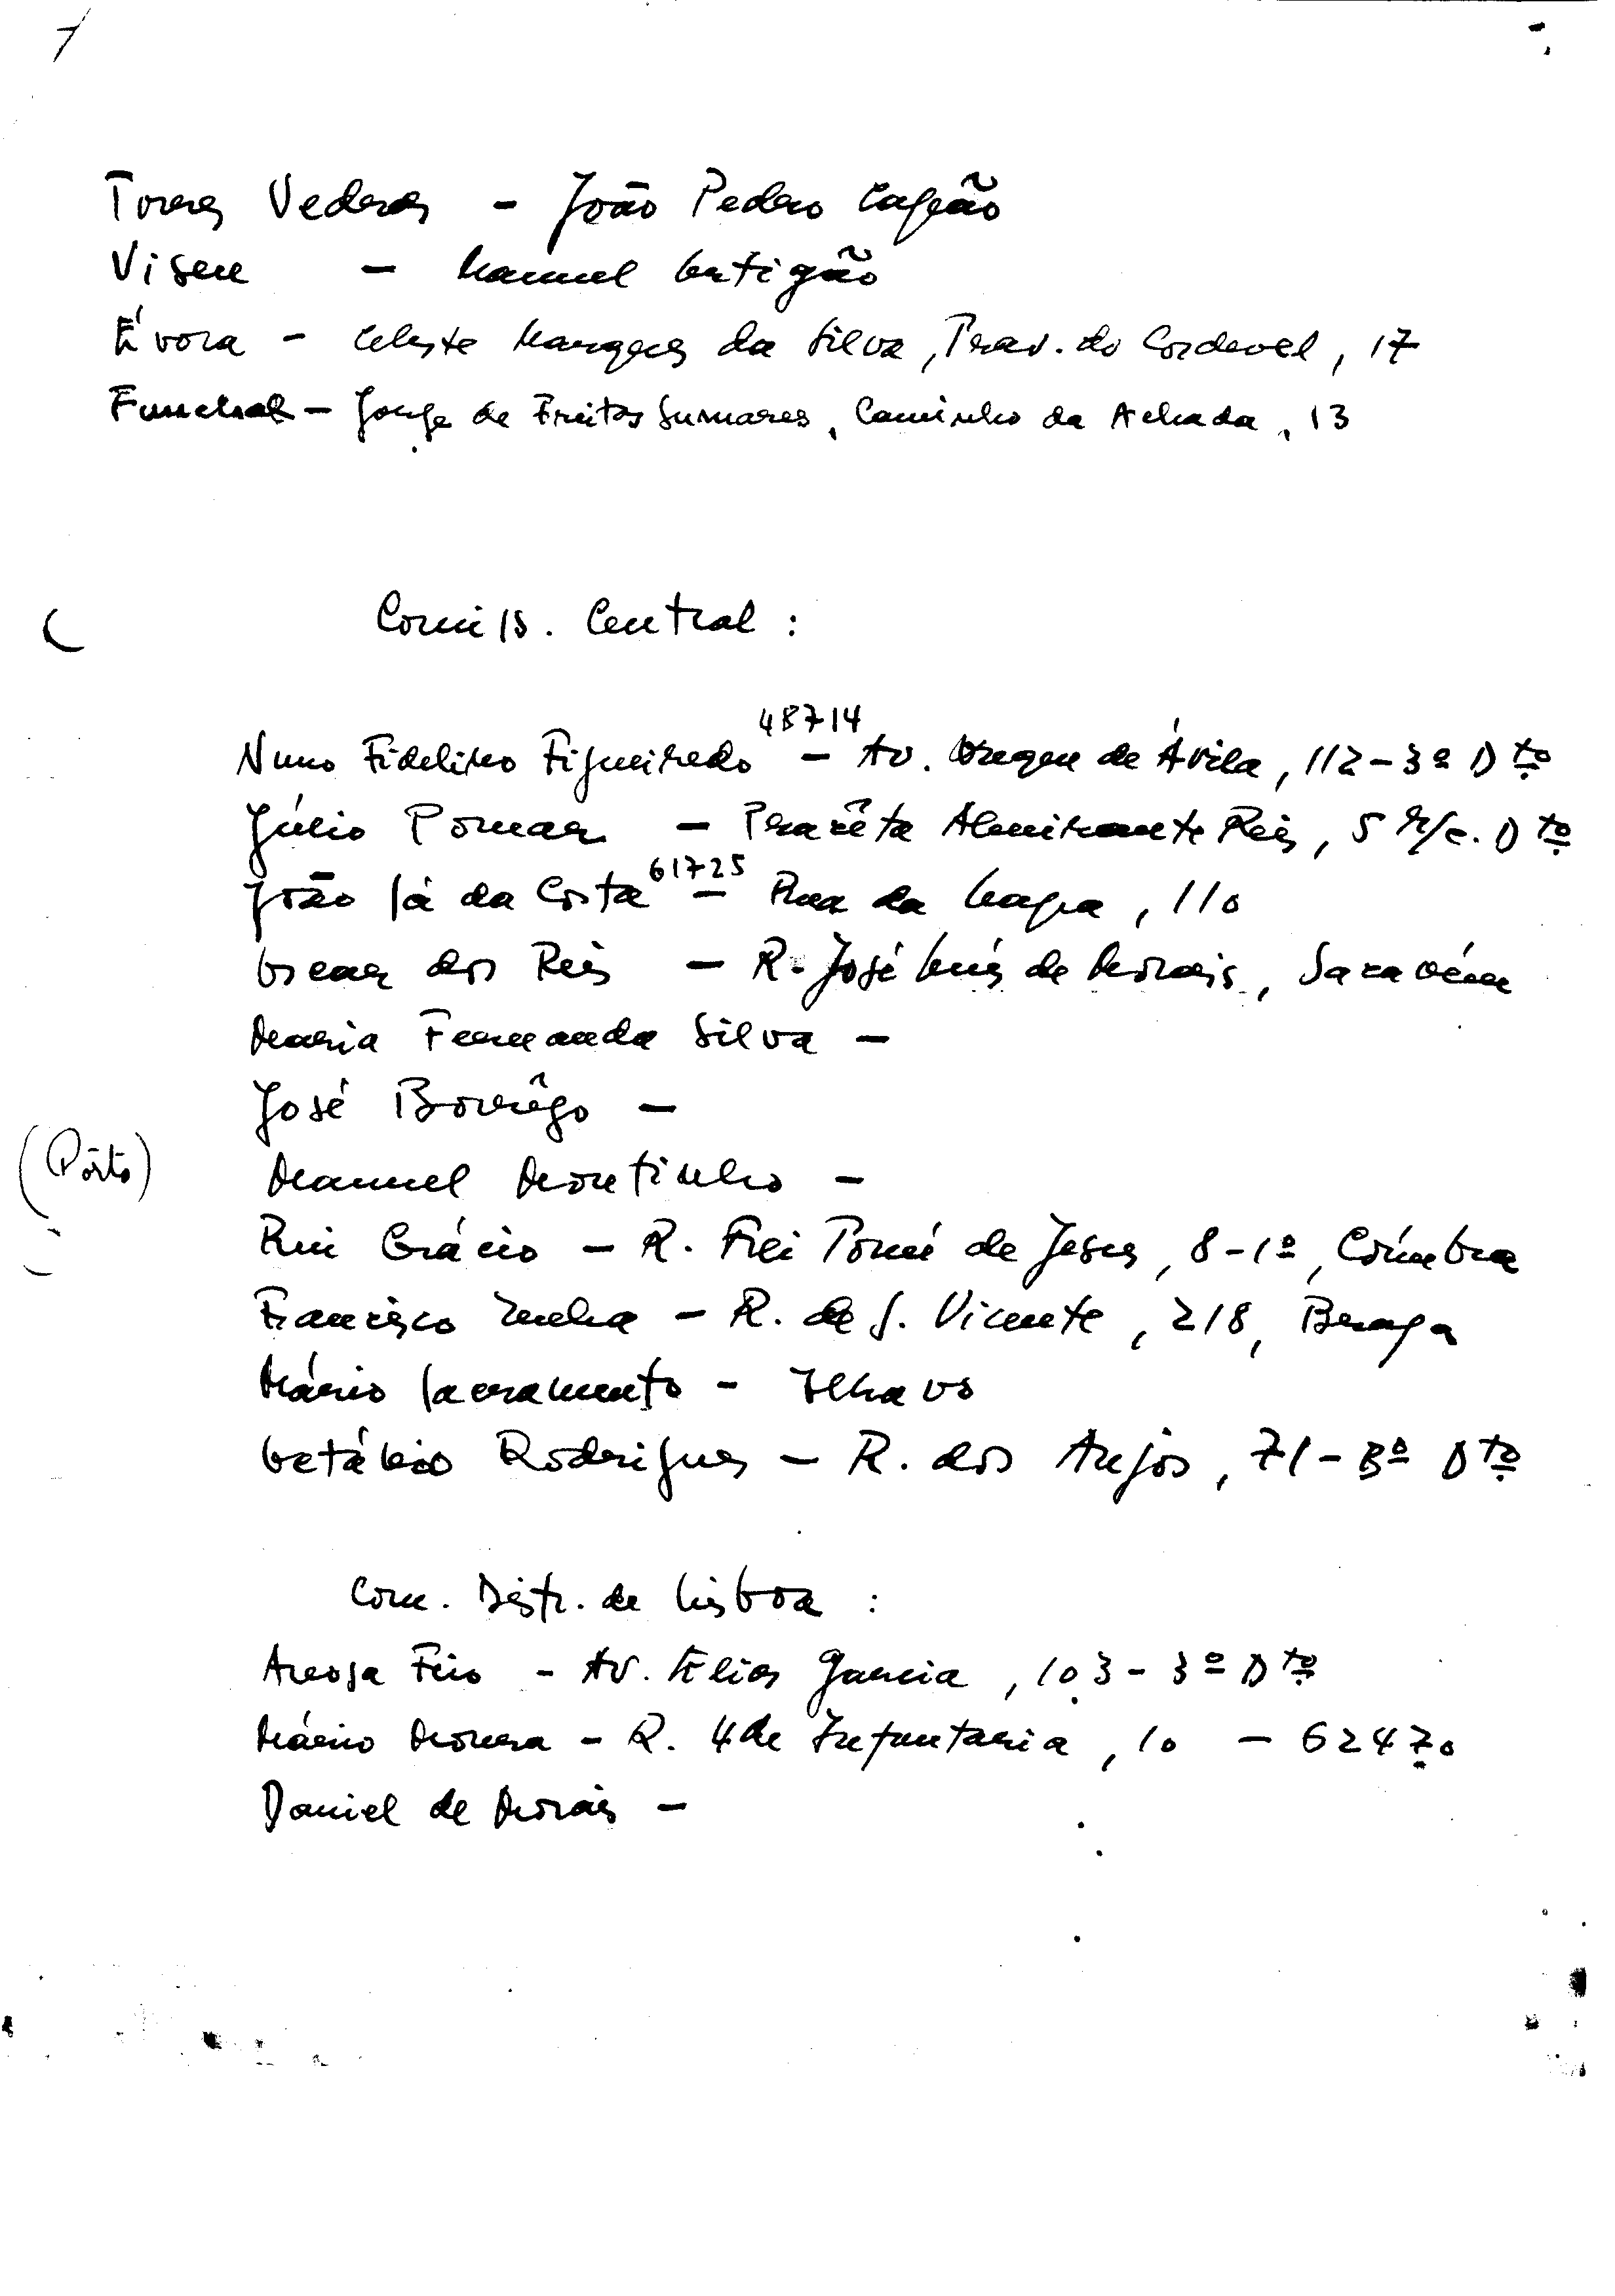 Torres Vedras - João Pedro Cafeão
Viseu - Manuel Catigão
Évora - Celeste Marques da Silva, Trav. do Cordovel, 17
Funchal - Jorge de Freitas Sumares, Caminho da Achada, 13
Comiss. Central :
48714
Nuno Fidelino Figueiredo - Av. Duque de Ávila, 112-3º Dto
Júlio Pomar - Pracêta Almirante Reis, 5 R/c. Dto
61725
João Sá da Costa - Rua da Lapa, 110
Oscar dos Reis - R. José Luís de Morais, Sacavém
Maria Fernanda Silva -
José Borrêgo -
(Pôrto) Manuel Moutinho -
Rui Grácio - R. Frei Tomé de Jesus, 8-1º, Coímbra
Francisco - R. de S. Vicente, 218, Braga
Mário Sacramento - Ilhavo
Octávio Rodrigues - R. dos Anjos, 71-3º Dto
Com. Distr. de Lisboa :
Areosa Feio - Av. Elias Garcia, 103-3º Dto
Mário Moura - R. 4 de Infantaria, 10 - 62470
Daniel de Morais -